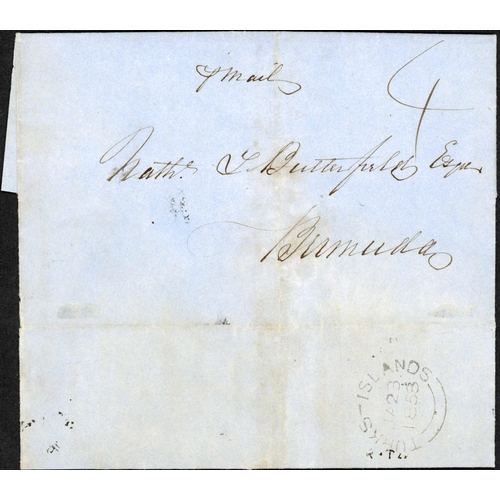 p Mail
4
Nath. T Butterfield Esqr
Bermuda
TURKS-ISLANDS
JA 23
1853